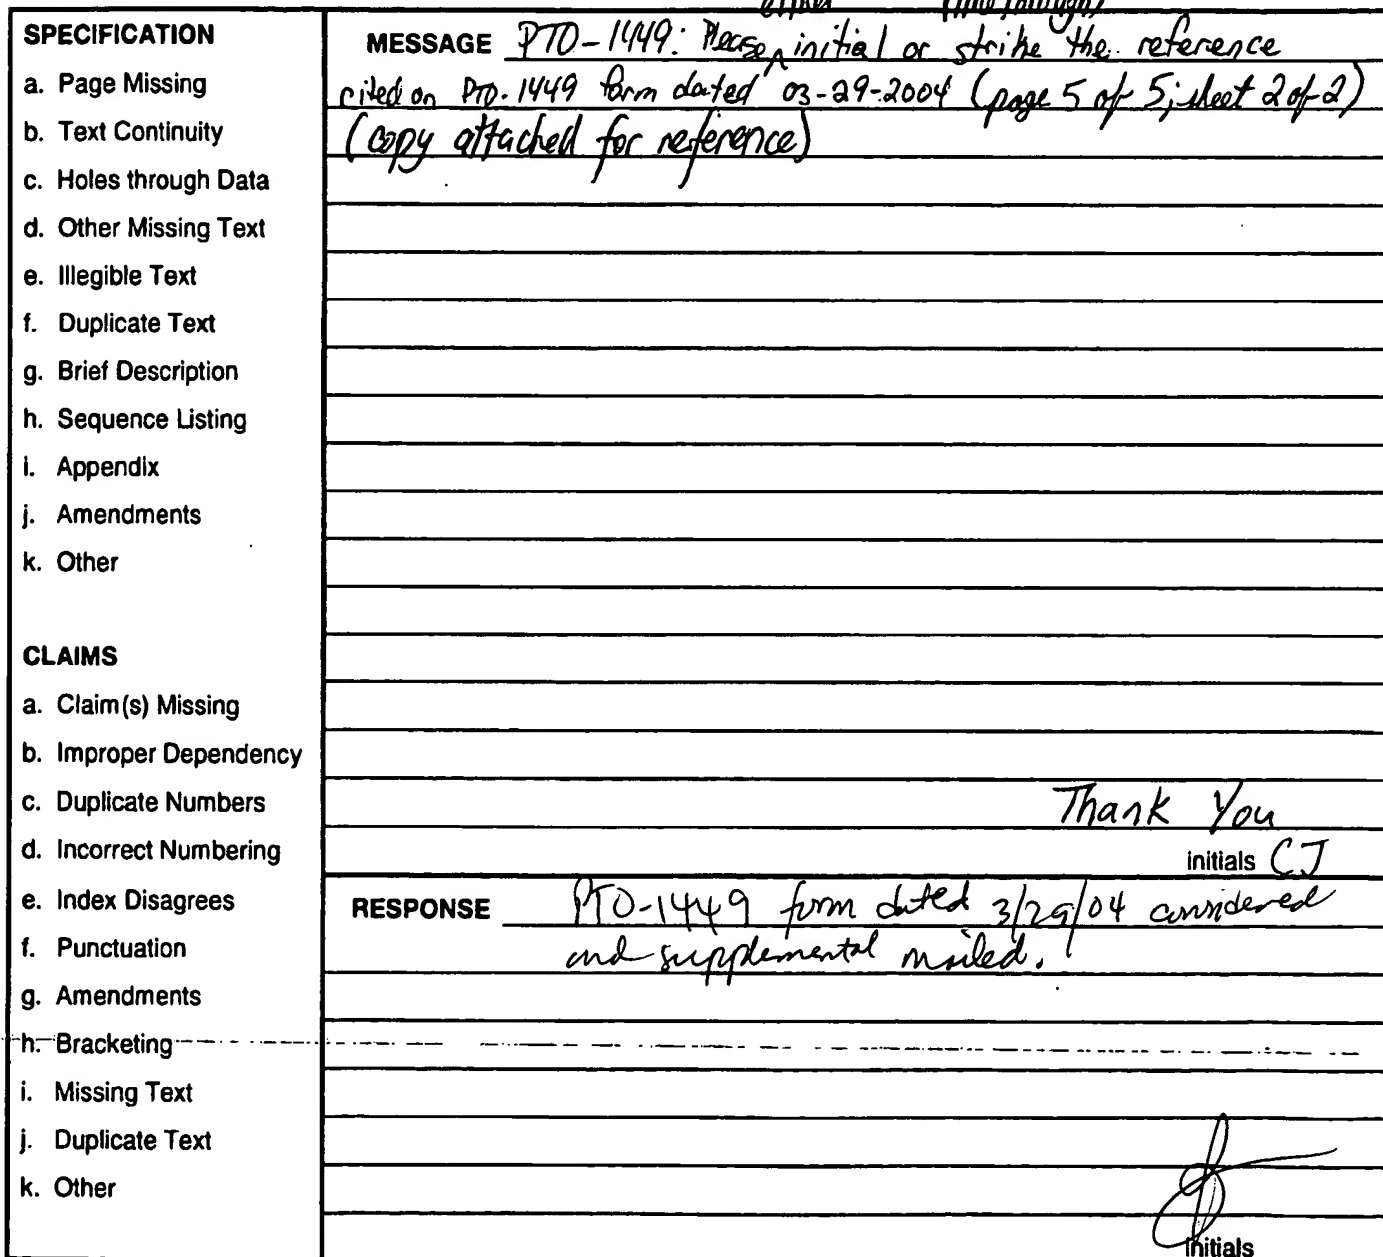 SPECIFICATION
a. Page Missing
b. Text Continuity
c. Holes through Data
d. Other Missing Text
e. Illegible Text
f. Duplicate Text
g. Brief Description
h. Sequence Listing
i. Appendix
j. Amendments
k. Other
CLAIMS
a. Claim(s) Missing
b. Improper Dependency
c. Duplicate Numbers
d. Incorrect Numbering
e. Index Disagrees
f. Punctuation
g. Amendments
h. Bracketing
i. Missing Text
j. Duplicate Text
k. Other
either (line through)
MESSAGE PTO-1449: Please initial or strike the reference
cited on PTO-1449 form dated 03-29-2004 (page 5 of 5; sheet 2 of 2)
(copy attached for reference)
Thank You
initials CJ
RESPONSE PTO-1449 form dated 3/29/04 considered
and supplemental mailed.
initials